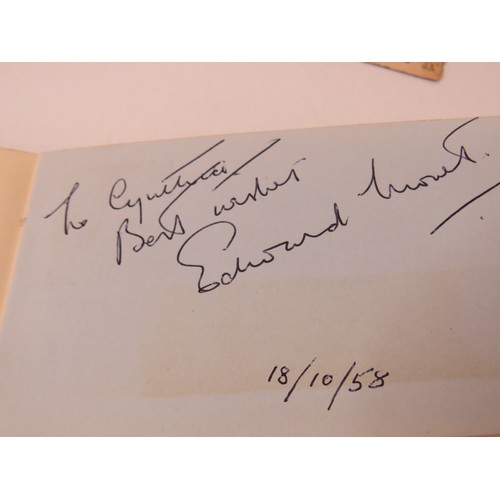 To Cynthia
Best wishes
Edward
18/10/58